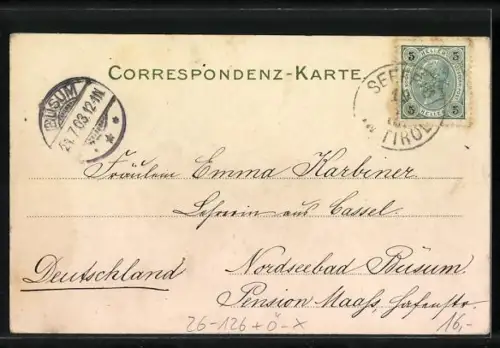 CORRESPONDENZ-KARTE
5 5
HELLER HELLER
5 5
BÜSUM
7.03.12-1N
TIROL
Fräulein Emma Karbiner
Lehrerin aus Cassel.
Deutschland
Nordseebad Büsum.
Pension Maass, Hafenstr.
26-126+Ö-X
16,-